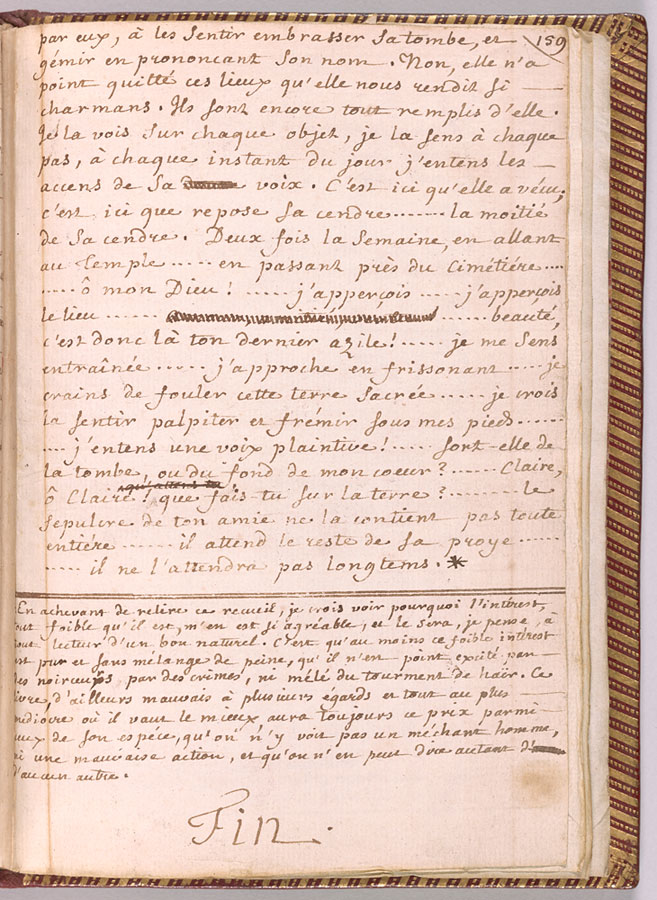 par eux, à les sentir embrasser sa tombe, et
159
gémir en prononcant son nom. Non, elle n'a
point quitté ces lieux qu'elle nous rendit si
charmans. Ils sont encore tout remplis d'elle.
Je la vois sur chaque objet, je la sens à chaque
pas, à chaque instant du jour j'entens les
accens de sa voix. C'est ici qu'elle a vécu;
c'est ici que repose sa cendre ....... la moitié
de sa cendre. Deux fois la semaine, en allant
au Temple ...... en passant près du Cimétiére .....
...... ô mon Dieu ! ...... j'apperçois ..... j'apperçois
le lieu ...... ...... beauté,
c'est donc là ton dernier azile ! ..... je me sens
entraînée ..... j'approche en frissonant ..... je
crains de fouler cette terre sacrée ...... je crois
la sentir palpiter et frémir sous mes pieds ......
.... j'entens une voix plaintive ! ..... sort-elle de
la tombe, ou du fond de mon coeur ? ...... Claire,
qu'attens tu
ô Claire ! que fais tu sur la terre ? ........ le
sepulcre de ton amie ne la contient pas toute
entiére ...... il attend le reste de sa proye ......
...... il ne l'attendra pas longtems. *
En achevant de relire ce recueil, je crois voir pourquoi l'intérest,
tout foible qu'il est, m'en est si agréable, et le sera, je pense, à
tout lecteur d'un bon naturel. C'est qu'au moins ce foible intérest
est pur et sans mélange de peine, qu'il n'en point excité par
des noirceurs, par des crimes, ni mêlé du tourment de haïr. Ce
livre, d'ailleurs mauvais à plusieurs égards et tout au plus
médiocre où il vaut le mieux aura toujours ce prix parmi
ceux de son espéce, qu'on n'y voit pas un méchant homme,
ni une mauvaise action, et qu'on n'en peut dire autant
d'aucun autre.
Fin.